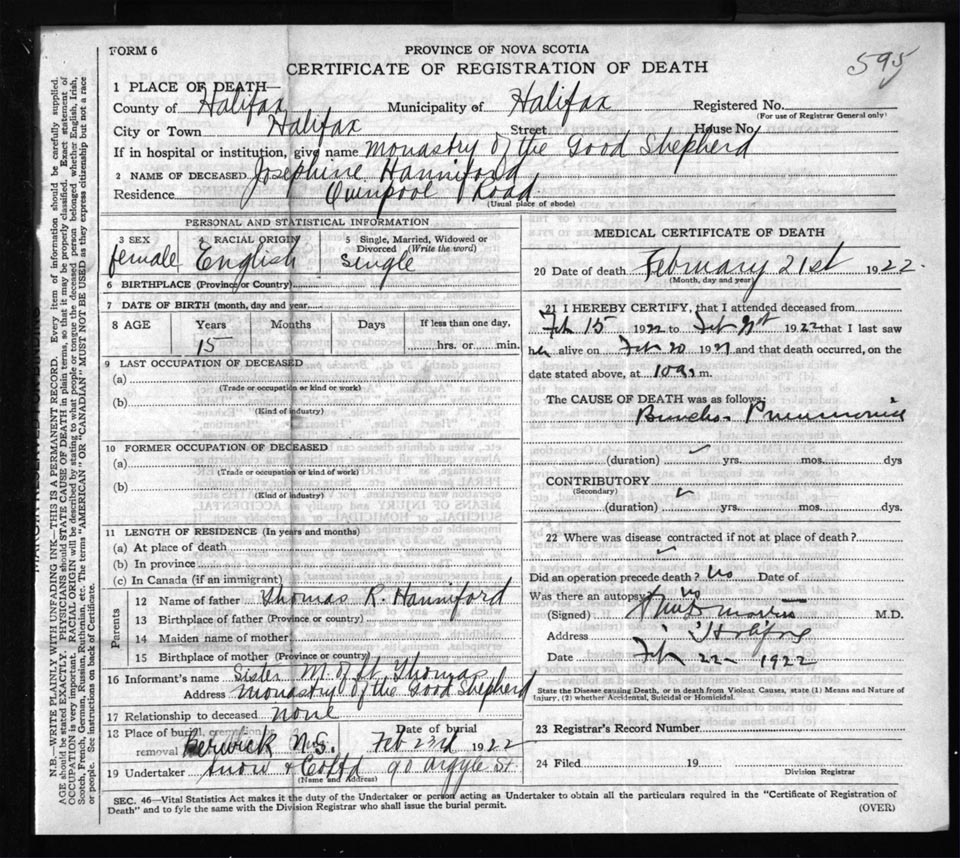 FORM 6
PROVINCE OF NOVA SCOTIA
CERTIFICATE OF REGISTRATION OF DEATH
595
1 PLACE OF DEATH—
County of Halifax Municipality of Halifax Registered No.
(For use of Registrar General only)
City or Town Halifax Street House No.
If in hospital or institution, give name Monastry of the Good Shepherd
2 NAME OF DECEASED Josephine Hanniford
Residence Quinpool Road
(Usual place of abode)
PERSONAL AND STATISTICAL INFORMATION
3 SEX
female
RACIAL ORIGIN
English
5 Single, Married, Widowed or
Divorced (Write the word)
single
6 BIRTHPLACE (Province or Country)
7 DATE OF BIRTH (month, day and year)
8 AGE Years Months Days If less than one day,
15 hrs. or min.
9 LAST OCCUPATION OF DECEASED
(a)
(Trade or occupation or kind or work)
(b)
(Kind of industry)
10 FORMER OCCUPATION OF DECEASED
(a)
(Trade or occupation or kind of work)
(b)
(Kind of industry)
11 LENGTH OF RESIDENCE (In years and months)
(a) At place of death
(b) In province
(c) In Canada (if an immigrant)
Parents
12 Name of father Thomas R. Hanniford
13 Birthplace of father (Province or country)
14 Maiden name of mother
15 Birthplace of mother (Province or country)
16 Informant's name Sister M. of St Thomas
Address Monastry of the Good Shepherd
17 Relationship to deceased none
18 Place of burial, cremation Date of burial
removal Berwick N.S. Feb 23rd 1922
19 Undertaker Snow & Co Ltd 90 Argyle St.
(Name and Address)
MEDICAL CERTIFICATE OF DEATH
20 Date of death February 21st 1922
(Month, day and year)
21 I HEREBY CERTIFY, that I attended deceased from
Feb 15 1922 to Feb 21st 1922 that I last saw
her alive on Feb 20 and that death occurred, on the
date stated above, at 10 a. m.
The CAUSE OF DEATH was as follows:
Broncho. Pneumonia
(duration) yrs. mos. dys
CONTRIBUTORY
(Secondary)
(duration) yrs. mos. dys.
22 Where was disease contracted if not at place of death?
Did an operation precede death? No Date of
Was there an autopsy? No
(Signed) M.D.
Address Halifax
Date Feb 22 1922
State the Disease causing Death, or in death from Violent Causes, state (1) Means and Nature of
Injury, (2) whether Accidental, Suicidal or Homicidal.
23 Registrar's Record Number
24 Filed 19
Division Registrar
SEC. 46—Vital Statistics Act makes it the duty of the Undertaker or person acting as Undertaker to obtain all the particulars required in the "Certificate of Registration of
Death" and to fyle the same with the Division Registrar who shall issue the burial permit.
(OVER)
MARGIN RESERVED FOR BINDING
N.B.—WRITE PLAINLY WITH UNFADING INK—THIS IS A PERMANENT RECORD. Every item of information should be carefully supplied.
AGE should be stated EXACTLY. PHYSICIANS should STATE CAUSE OF DEATH in plain terms, so that it may be properly classified. Exact statement of
OCCUPATION is very important. RACIAL ORIGIN will be described by stating to what people or tongue the deceased person belonged whether English, Irish,
Scotch, French, German, Russian, Ruthenian, etc. The terms "AMERICAN" OR "CANADIAN" MUST NOT BE USED as they express citizenship but not a race
or people. See instructions on back of Certificate.